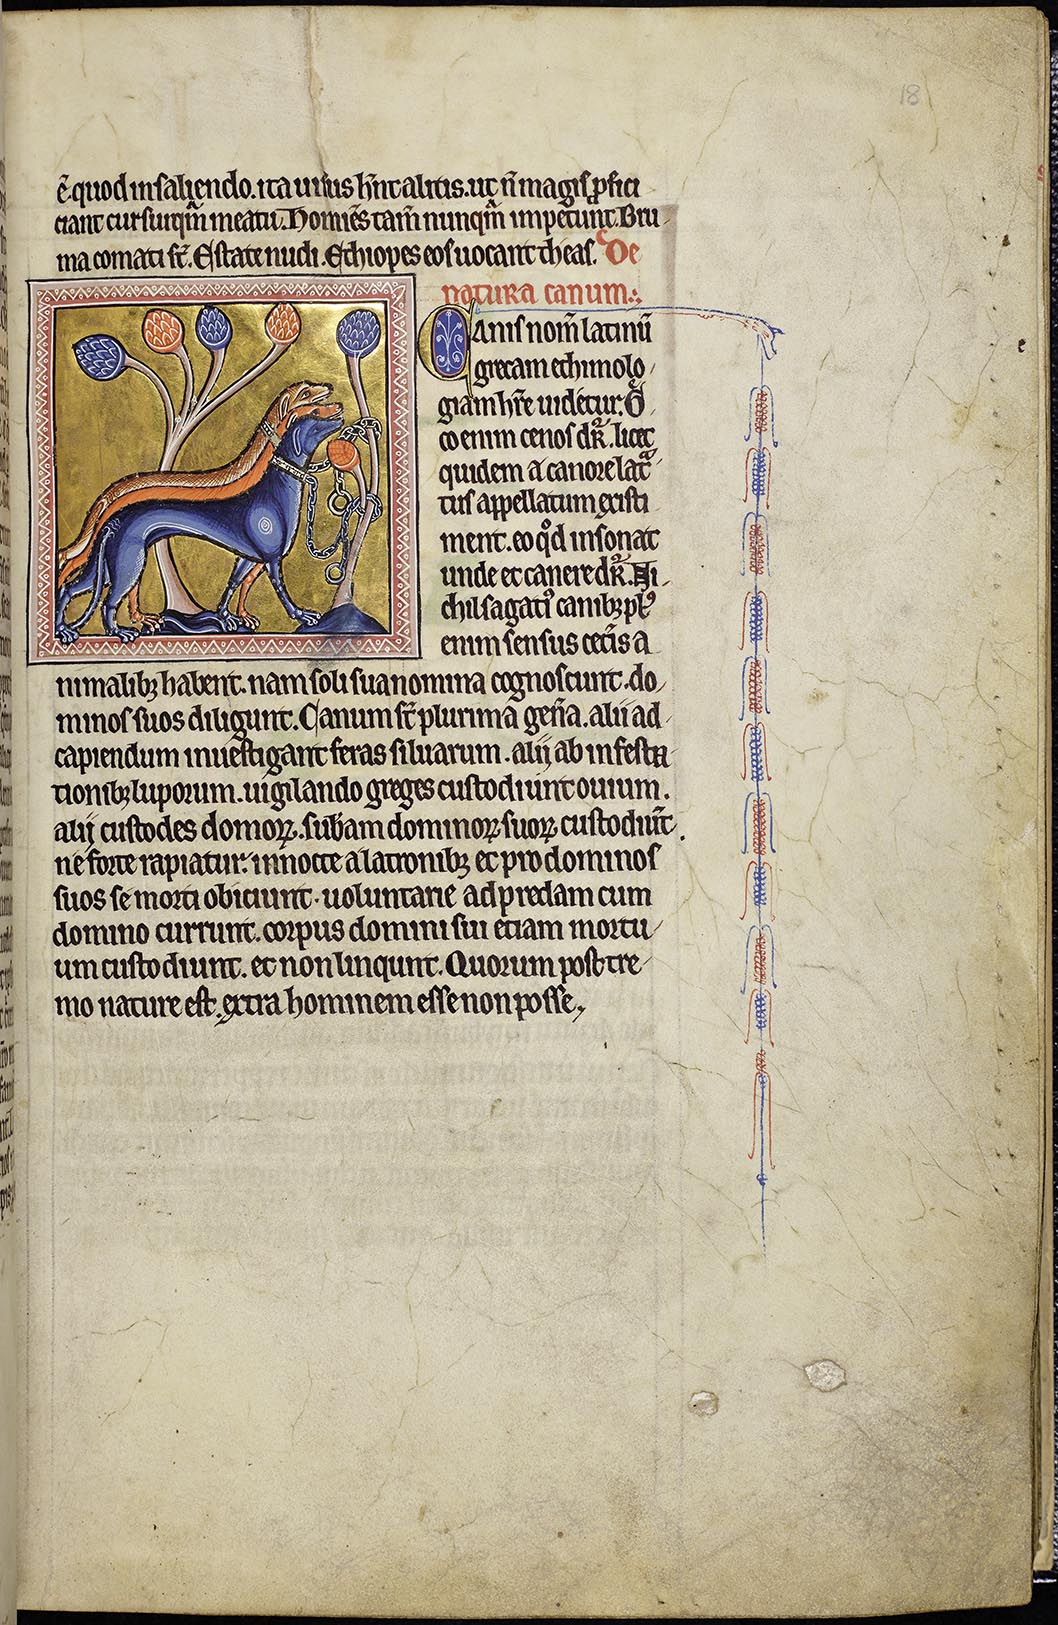 18
ē. quod insaliendo. ita uisus hn̄t alitis. ut n̄ magis ꝓfici
ciant cursu qm̄ meatu. Homīes tam̄ nunqm̄ impetunt. Bru
ma comati st̄. Estate nudi. Ethiopes eos uocant theas. De
natura canum
Canis nom̄ latinū
grecam ethimolo
giam hr̄e uidetur. G̅
co enim cenos dr̄. licet
quidem a canore lat͛
tus appellatum existi
ment. eo qd̛ insonat
unde et canere dr̄. Ni
chil sagati᷒ canibꝫ pl᷒
enim sensus cet͛is a
nimalibꝫ habent. nam soli sua nomina cognoscunt. do
minos suos diligunt. Canum st̄ plurima gen͛a. alii ad
capiendum inuestigant feras siluarum. alij ab infesta
tionibꝫ luporum. uigilando greges custodiunt ouium.
alij custodes domoꝝ. subam dominoꝝ suoꝝ custodiūt.
ne forte rapiatur. in nocte a latronibꝫ et pro dominos
suos se morti obiciunt. uoluntarie ad predam cum
domino currunt. corpus domini sui etiam mortu
um custodiunt. et non linqunt. Quorum postre
mo nature est. extra hominem esse non posse